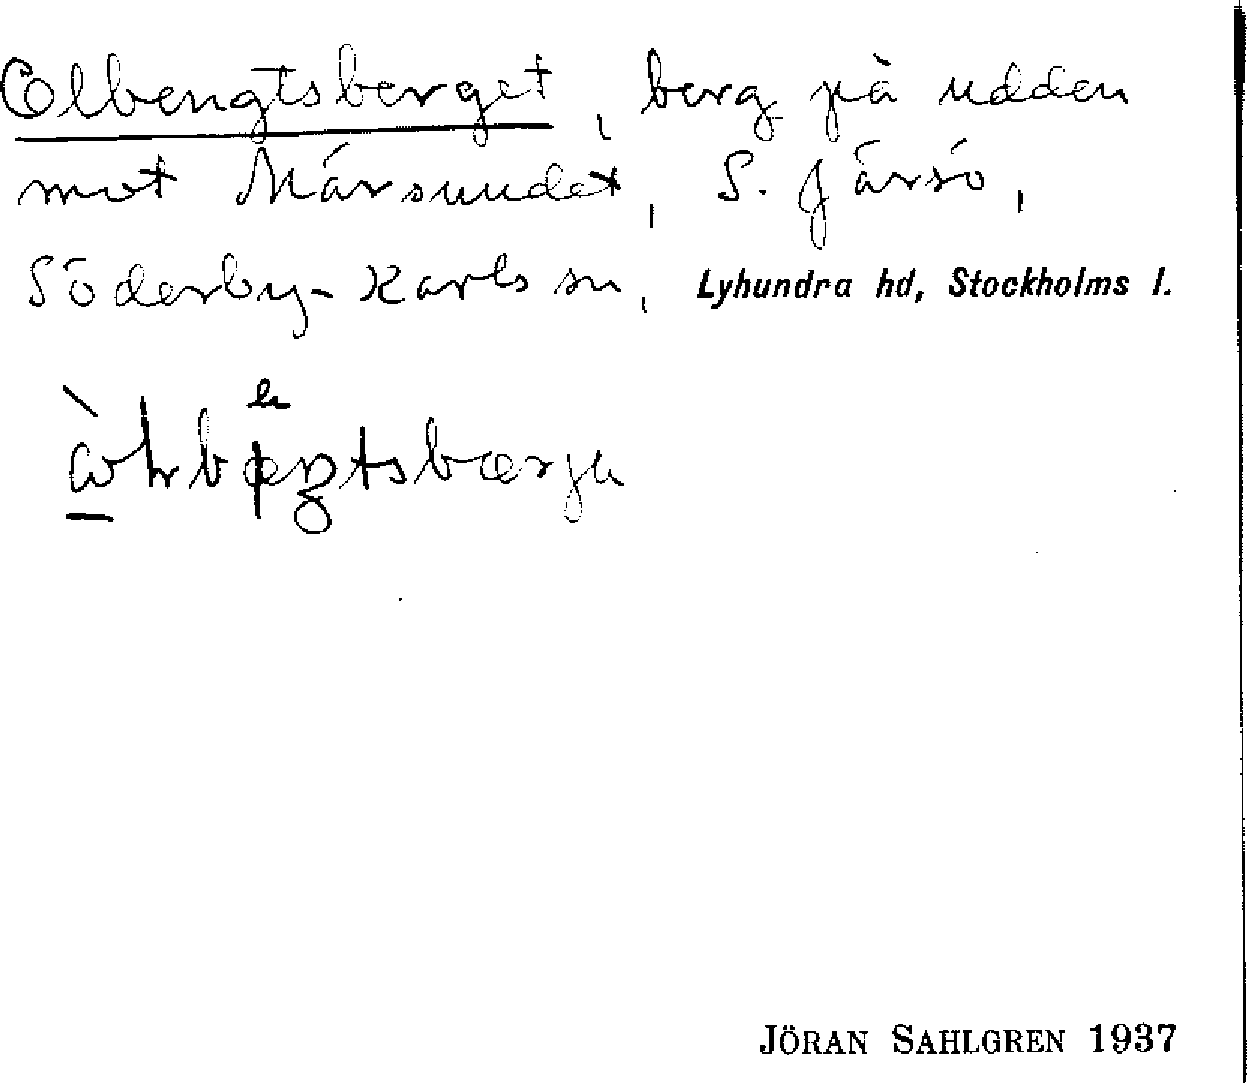 Olbengtsberget, berg på udden
mot Mársundet, S. Järsö,
Söderby-Karls sn, Lyhundra hd, Stockholms l.
JÖRAN SAHLGREN 1937